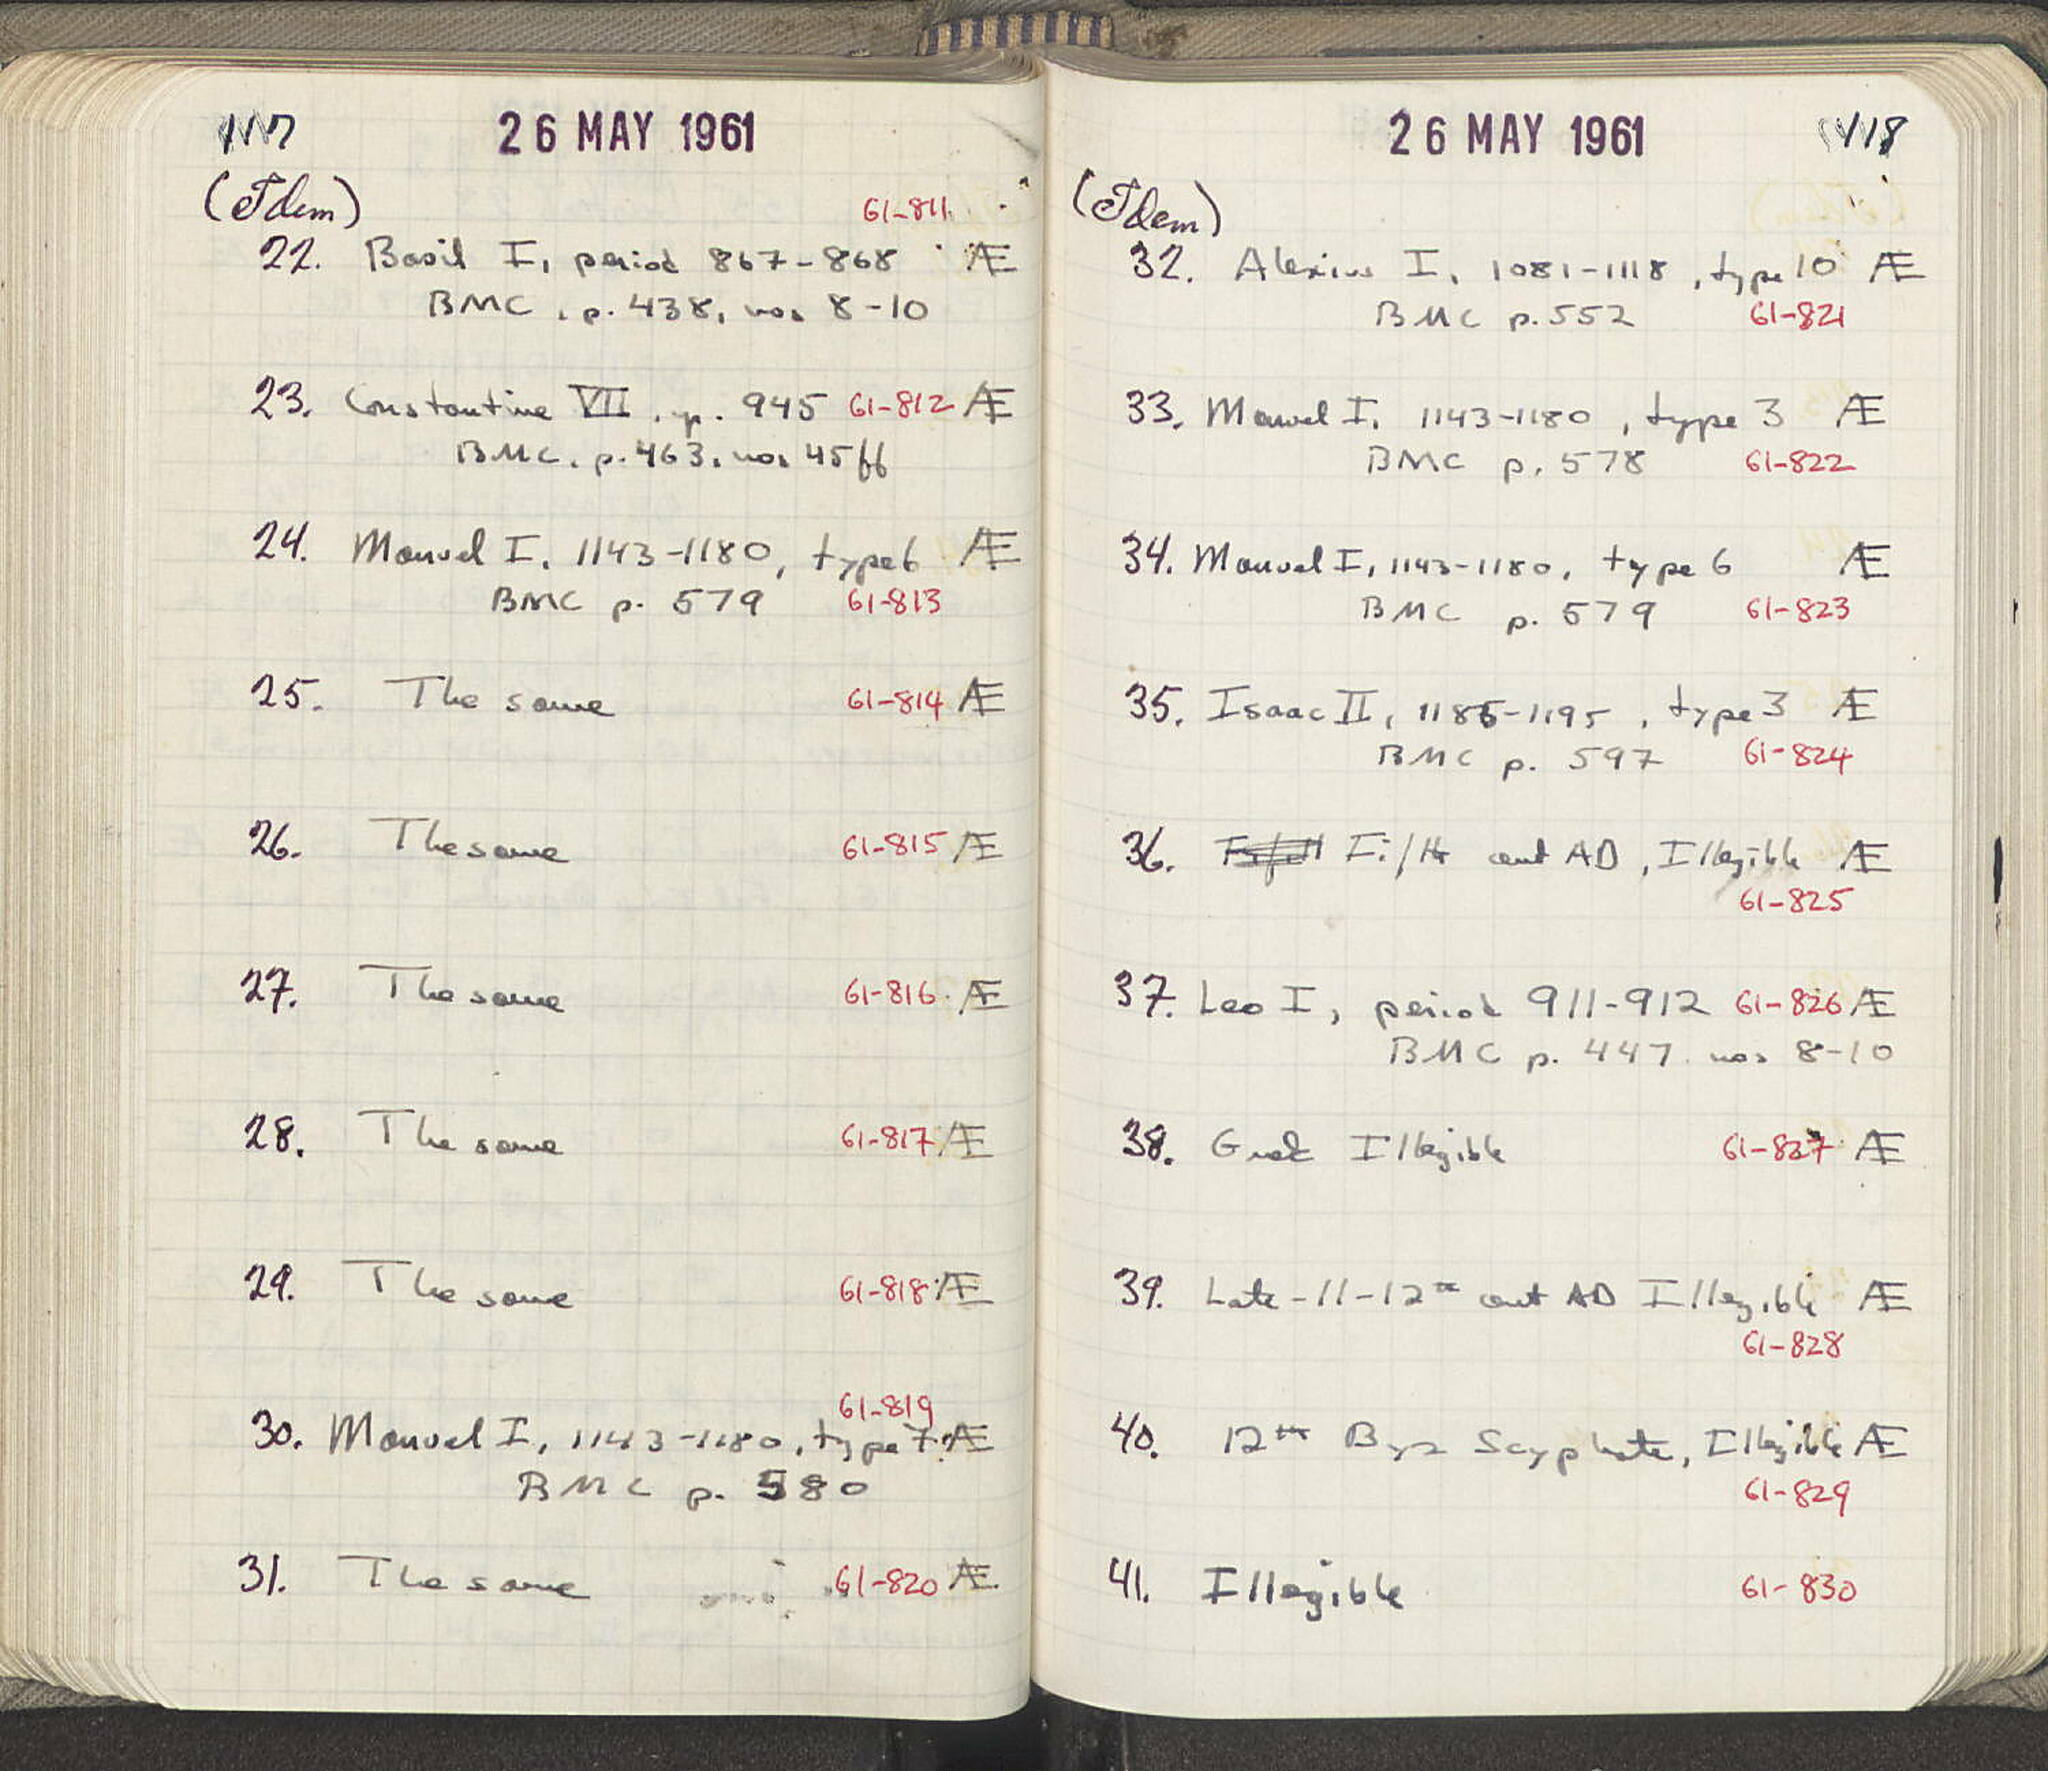 117
26 MAY 1961
(Idem)
61-811
22. Basil I, period 867-868 Æ
BMC, p. 438, nos 8-10
23. Constantine VII, p. 945 61-812 Æ
BMC, p. 463, nos 45ff
24. Manuel I, 1143-1180, type 6 Æ
BMC p. 579 61-813
25. The same 61-814 Æ
26. The same 61-815 Æ
27. The same 61-816 Æ
28. The same 61-817 Æ
29. The same 61-818 Æ
61-819
30. Manuel I, 1143-1180, type 7 Æ
BMC p. 580
31. The same 61-820 Æ
26 MAY 1961 118
(Idem)
32. Alexius I, 1081-1118, type 10 Æ
BMC p. 552 61-821
33. Manuel I, 1143-1180, type 3 Æ
BMC p. 578 61-822
34. Manuel I, 1143-1180, type 6 Æ
BMC p. 579 61-823
35. Isaac II, 1185-1195, type 3 Æ
BMC p. 597 61-824
36. cent AD, Illegible Æ
61-825
37. Leo I, period 911-912 61-826 Æ
BMC p. 447 nos 8-10
38. Greek Illegible 61-827 Æ
39. Late-11-12th cent AD Illegible Æ
61-828
40. 12th Byz Scyphate, Illegible Æ
61-829
41. Illegible 61-830